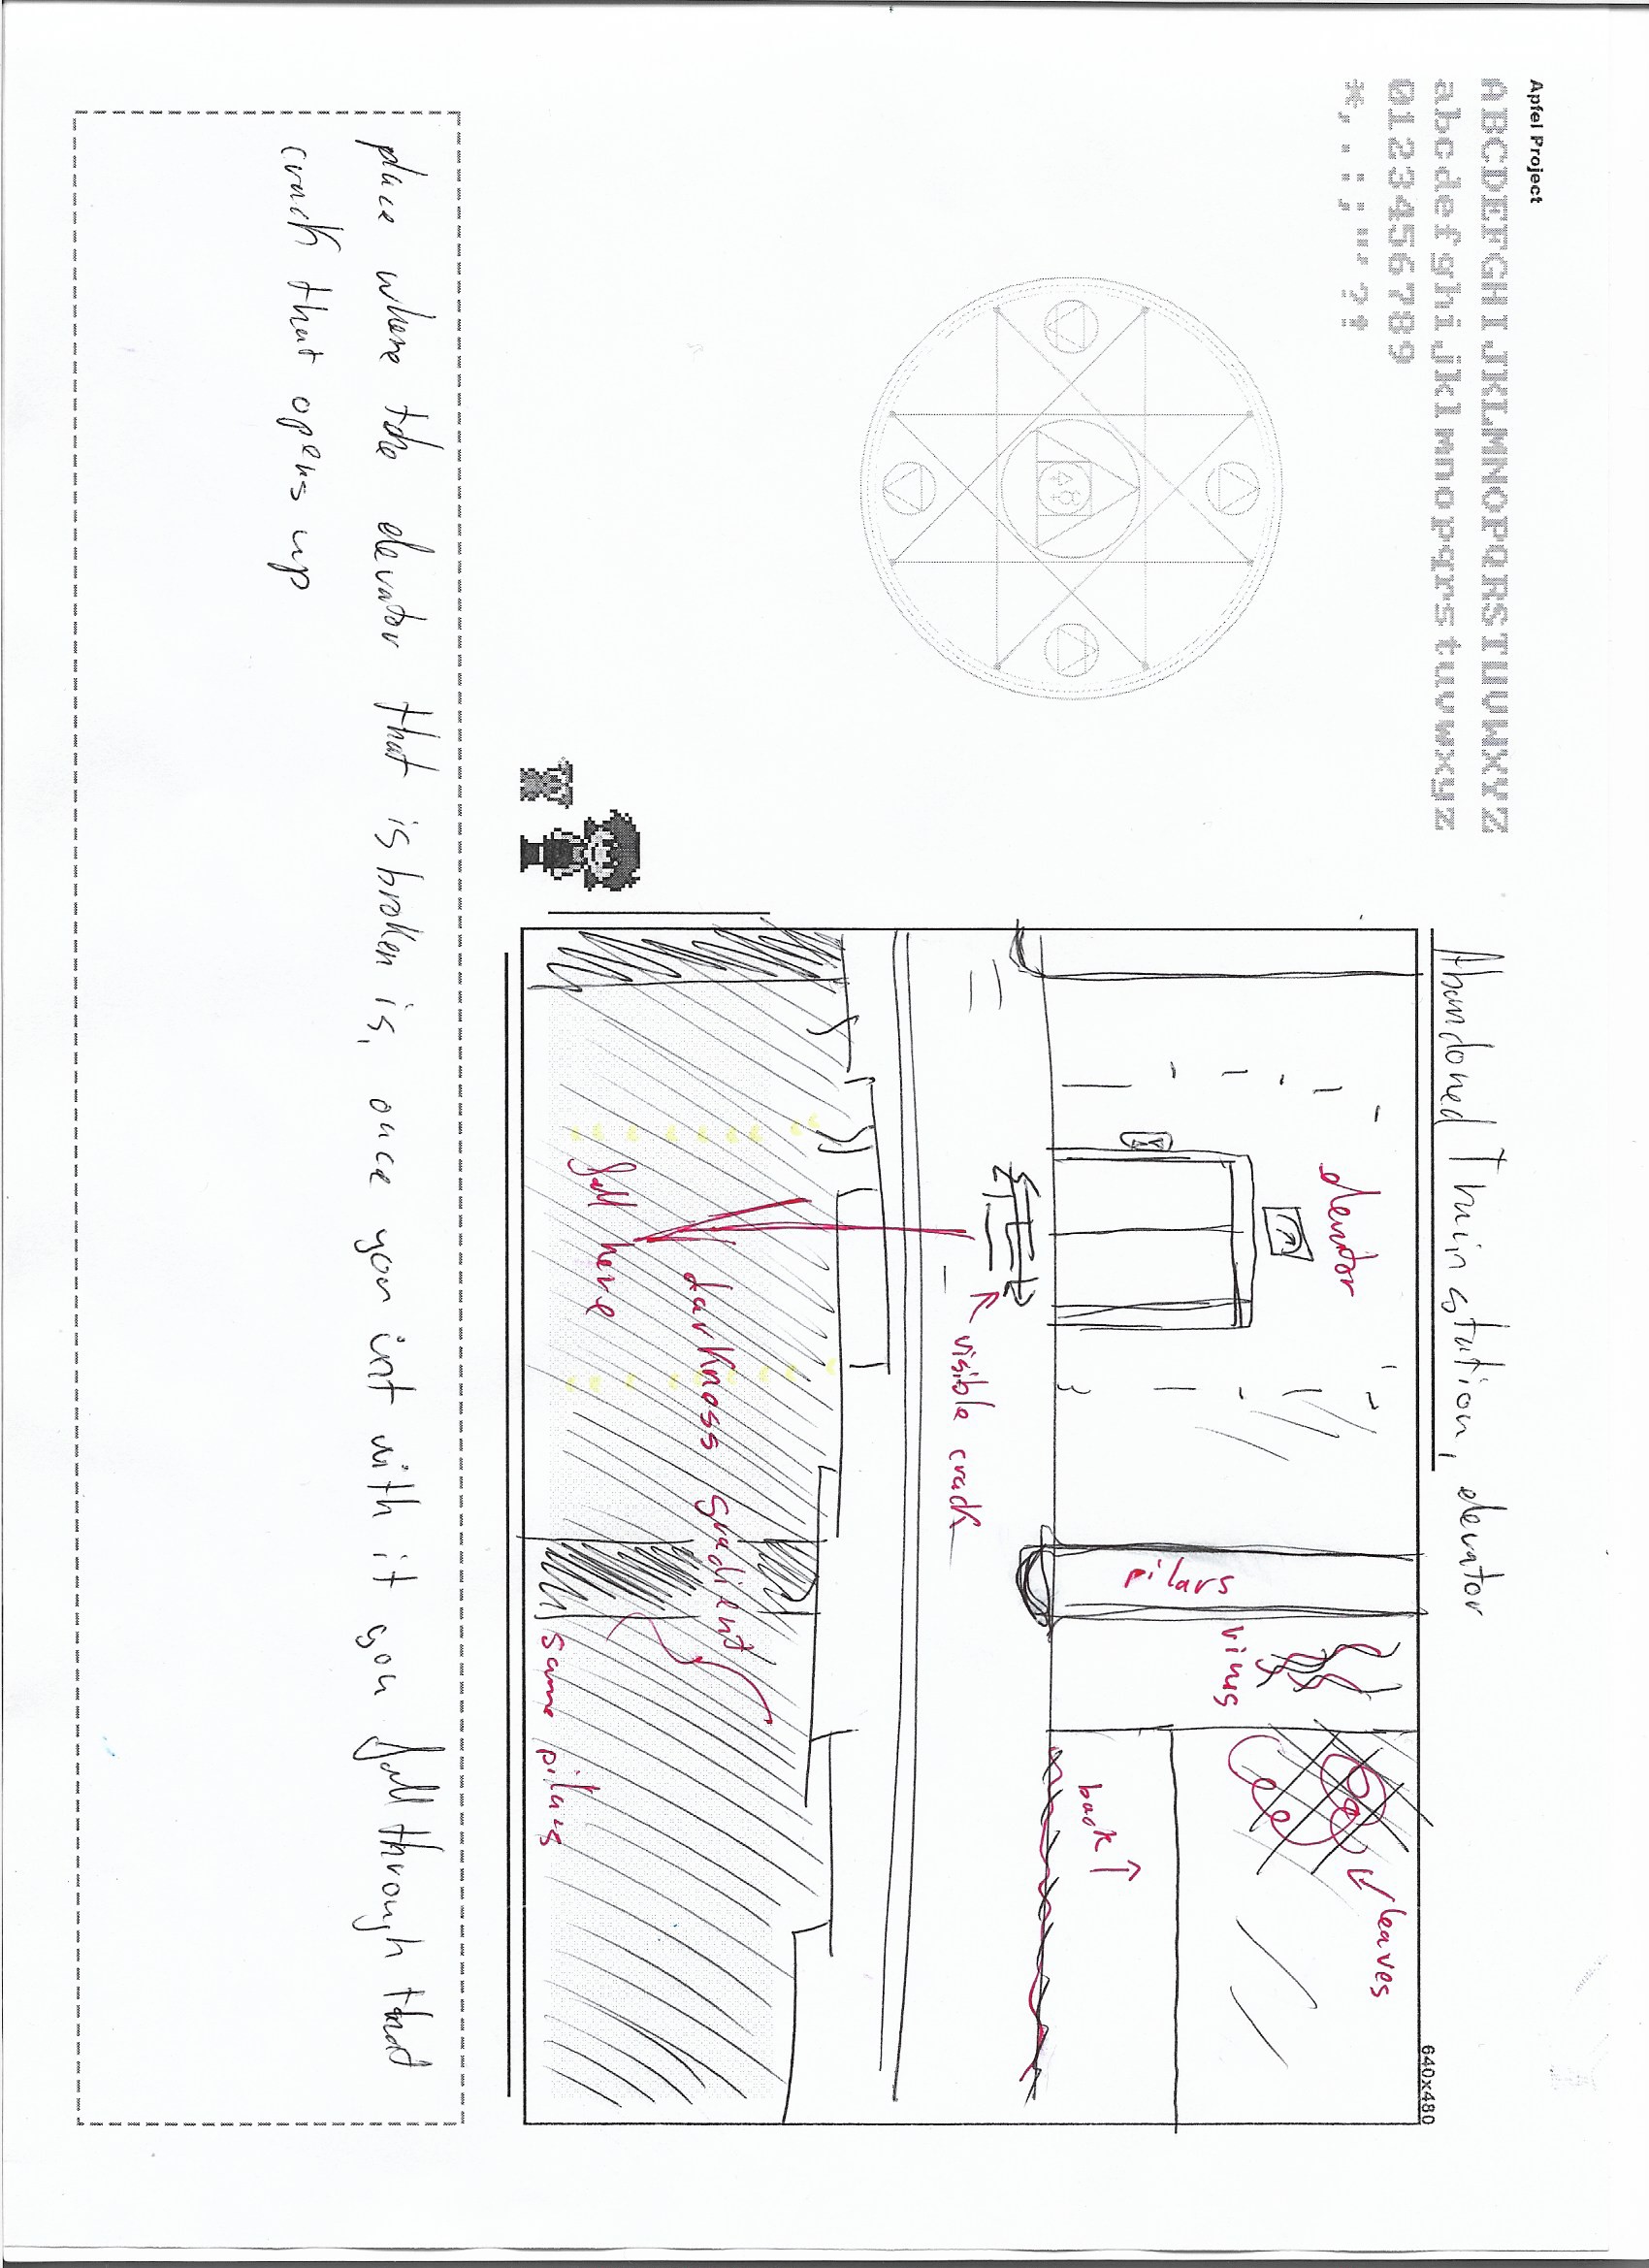 Apfel Project
ABCDEFGHIJKLMNOPQRSTUVWXYZ
abcdefghijklmnopqrstuvwxyz
0123456789
*,.:;"'?!
Abandoned Train station, elevator
640x480
leaves
elevator
vines
pilars
back ↑
visible crack
darkness gradient
fall here
same pilars
place where the elevator that is broken is, once you int with it you fall through that
crack that opens up